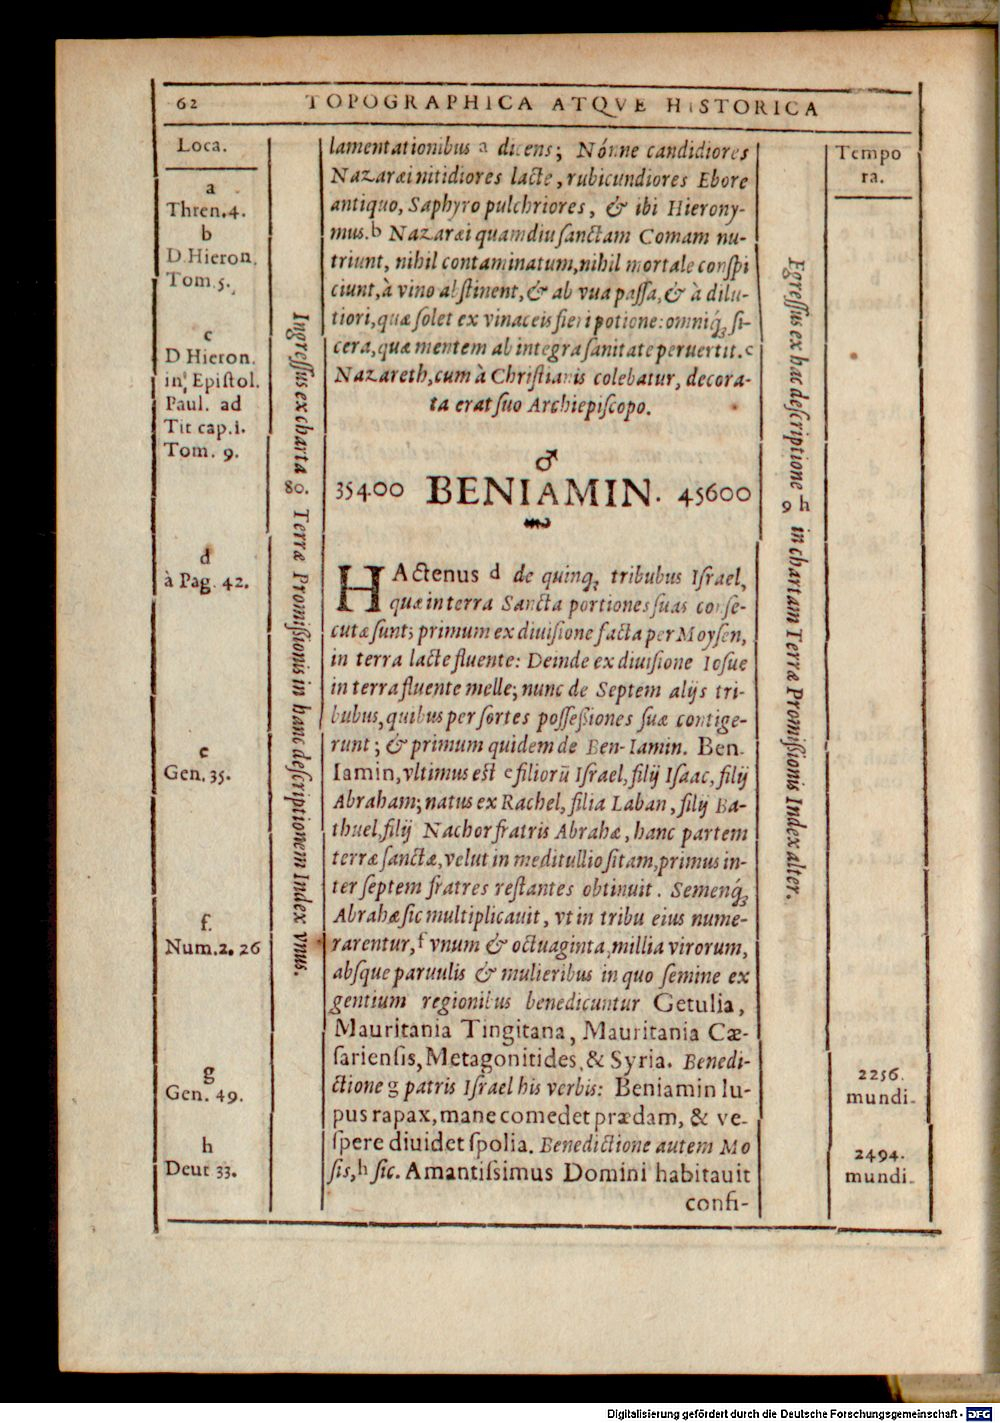 62 TOPOGRAPHICA ATQVE HISTORICA
Loca.
a
Thren.4.
b
D.Hieron.
Tom.5.
c
D Hieron.
in Epistol.
Paul. ad
Tit cap.i.
Tom. 9.
d
à Pag. 42.
e
Gen. 35.
f.
Num.2. 26
g
Gen. 49.
h
Deut 33.
Ingreſſus ex charta 80. Terræ Promiſſionis in hanc deſcriptionem Index vnus.
lamentationibus a dicens; Nónne candidiores
Nazaræi nitidiores lacte, rubicundiores Ebore
antiquo, Saphyro pulchriores, & ibi Hierony-
mus.b Nazaræi quamdiu ſanctam Comam nu-
triunt, nihil contaminatum, nihil mortale conſpi
ciunt, à vino abſtinent, & ab vua paſſa, & à dilu-
tiori, quæ ſolet ex vinaceis fieri potione: omniq́ ſi-
cera, quæ mentem ab integra ſanitate peruertit.c
Nazareth, cum à Chriſtianis colebatur, decora-
ta erat ſuo Archiepiſcopo.
♂
35400 BENIAMIN. 45600
HActenus d de quinq́ tribubus Iſrael,
quæ in terra Sancta portiones ſuas conſe-
cutæ ſunt; primum ex diuiſione facta per Moyſen,
in terra lacte fluente: Deinde ex diuiſione Ioſue
in terra fluente melle; nunc de Septem alijs tri-
bubus, quibus per ſortes poſſeſſiones ſuæ contige-
runt; & primum quidem de Ben-Iamin. Ben-
Iamin, vltimus eſt e filiorū Iſrael, filij Iſaac, filij
Abraham; natus ex Rachel, filia Laban, filij Ba-
thuel, filij Nachor fratris Abrahæ, hanc partem
terræ ſanctæ, velut in meditullio ſitam, primus in-
ter ſeptem fratres reſtantes obtinuit. Semenq́
Abrahæ ſic multiplicauit, vt in tribu eius nume-
rarentur, f vnum & octuaginta millia virorum,
abſque paruulis & mulieribus in quo ſemine ex
gentium regionibus benedicuntur Getulia,
Mauritania Tingitana, Mauritania Cæ-
ſarienſis, Metagonitides, & Syria. Benedi-
ctione g patris Iſrael his verbis: Beniamin lu-
pus rapax, mane comedet prædam, & ve-
ſpere diuidet ſpolia. Benedictione autem Mo
ſis, h ſic. Amantiſsimus Domini habitauit
confi-
Egreſſus ex hac deſcriptione 9 h in chartam Terræ Promiſſionis Index alter.
Tempo
ra.
2256.
mundi.
2494.
mundi.
Digitalisierung gefördert durch die Deutsche Forschungsgemeinschaft - DFG